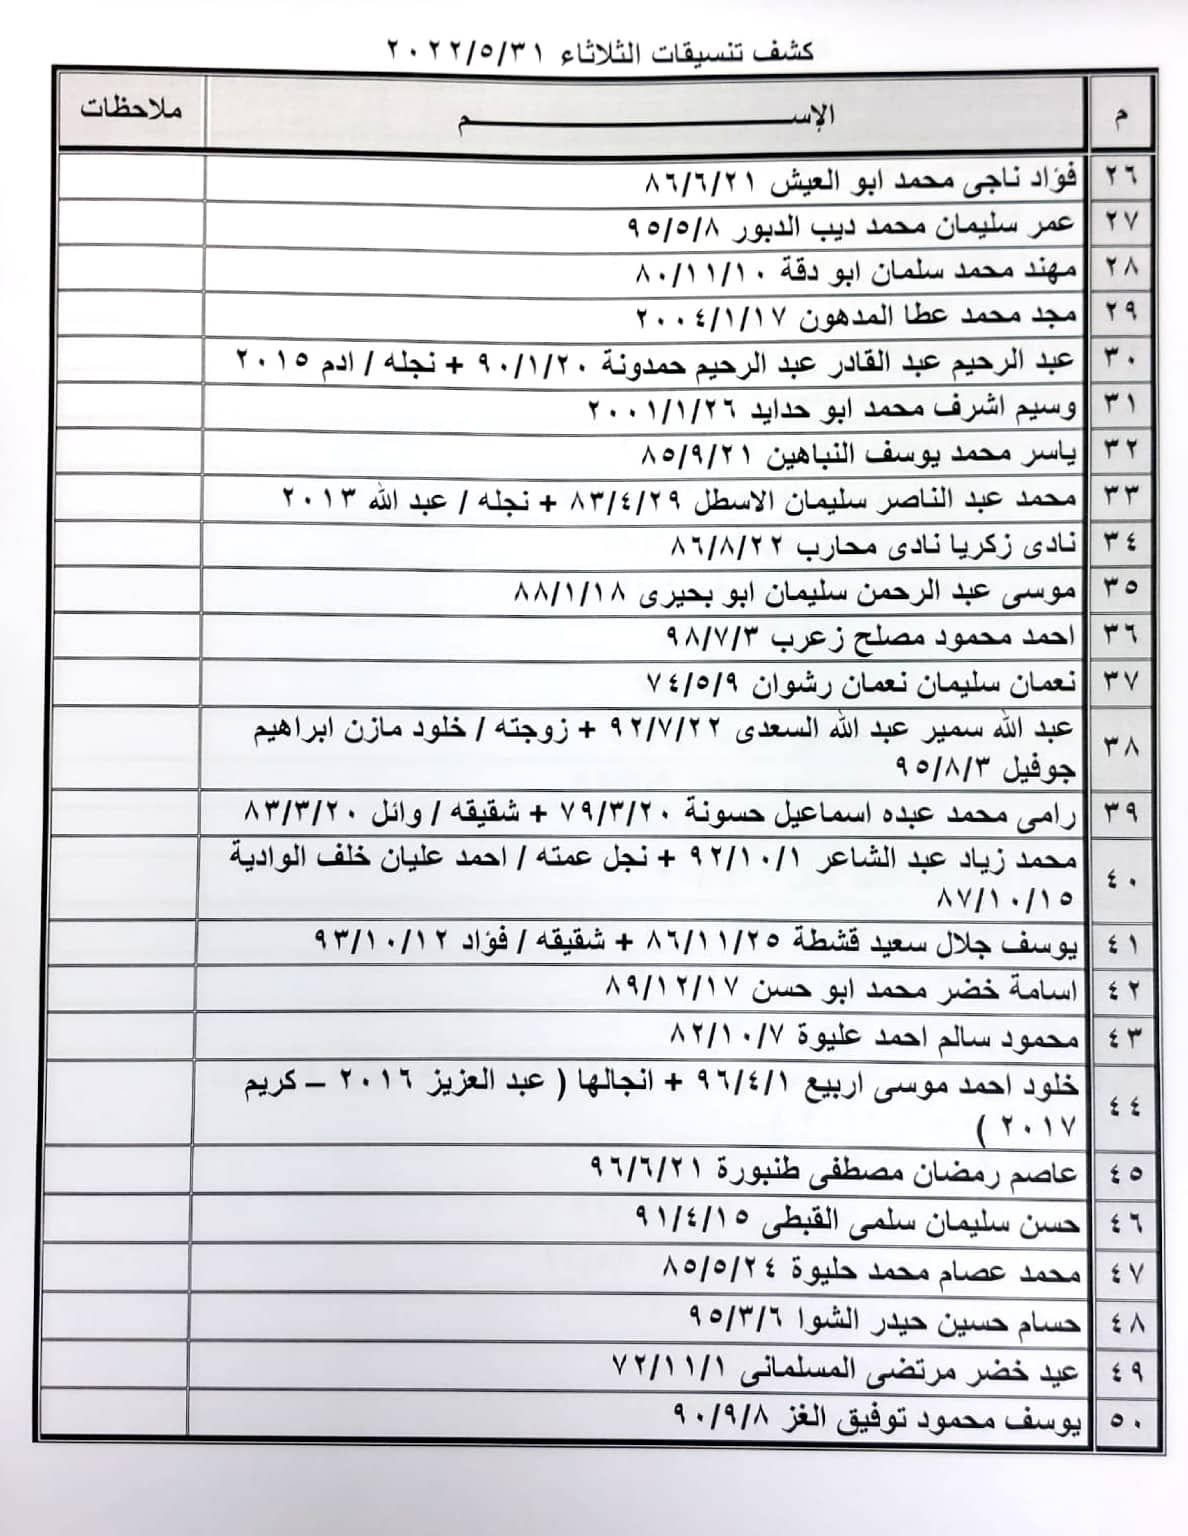 كشف تنسيقات الثلاثاء ٢٠٢٢/٥/٣١
م الإسـم ملاحظات
٢٦ فؤاد ناجى محمد ابو العيش ٨٦/٦/٢١
٢٧ عمر سليمان محمد ديب الدبور ٩٥/٥/٨
٢٨ مهند محمد سلمان ابو دقة ٨٠/١١/١٠
٢٩ مجد محمد عطا المدهون ٢٠٠٤/١/١٧
٣٠ عبد الرحيم عبد القادر عبد الرحيم حمدونة ٩٠/١/٢٠ + نجله / ادم ٢٠١٥
٣١ وسيم اشرف محمد ابو حدايد ٢٠٠١/١/٢٦
٣٢ ياسر محمد يوسف النباهين ٨٥/٩/٢١
٣٣ محمد عبد الناصر سليمان الاسطل ٨٣/٤/٢٩ + نجله / عبد الله ٢٠١٣
٣٤ نادى زكريا نادى محارب ٨٦/٨/٢٢
٣٥ موسى عبد الرحمن سليمان ابو بحيرى ٨٨/١/١٨
٣٦ احمد محمود مصلح زعرب ٩٨/٧/٣
٣٧ نعمان سليمان نعمان رشوان ٧٤/٥/٩
٣٨ عبد الله سمير عبد الله السعدى ٩٢/٧/٢٢ + زوجته / خلود مازن ابراهيم
جوفيل ٩٥/٨/٣
٣٩ رامى محمد عبده اسماعيل حسونة ٧٩/٣/٢٠ + شقيقه / وائل ٨٣/٣/٢٠
٤٠ محمد زياد عبد الشاعر ٩٢/١٠/١ + نجل عمته / احمد عليان خلف الوادية
٨٧/١٠/١٥
٤١ يوسف جلال سعيد قشطة ٨٦/١١/٢٥ + شقيقه / فؤاد ٩٣/١٠/١٢
٤٢ اسامة خضر محمد ابو حسن ٨٩/١٢/١٧
٤٣ محمود سالم احمد عليوة ٨٢/١٠/٧
٤٤ خلود احمد موسى اربيع ٩٦/٤/١ + انجالها ( عبد العزيز ٢٠١٦ – كريم
٢٠١٧ )
٤٥ عاصم رمضان مصطفى طنبورة ٩٦/٦/٢١
٤٦ حسن سليمان سلمى القبطى ٩١/٤/١٥
٤٧ محمد عصام محمد حليوة ٨٥/٥/٢٤
٤٨ حسام حسين حيدر الشوا ٩٥/٣/٦
٤٩ عيد خضر مرتضى المسلمانى ٧٢/١١/١
٥٠ يوسف محمود توفيق الغز ٩٠/٩/٨